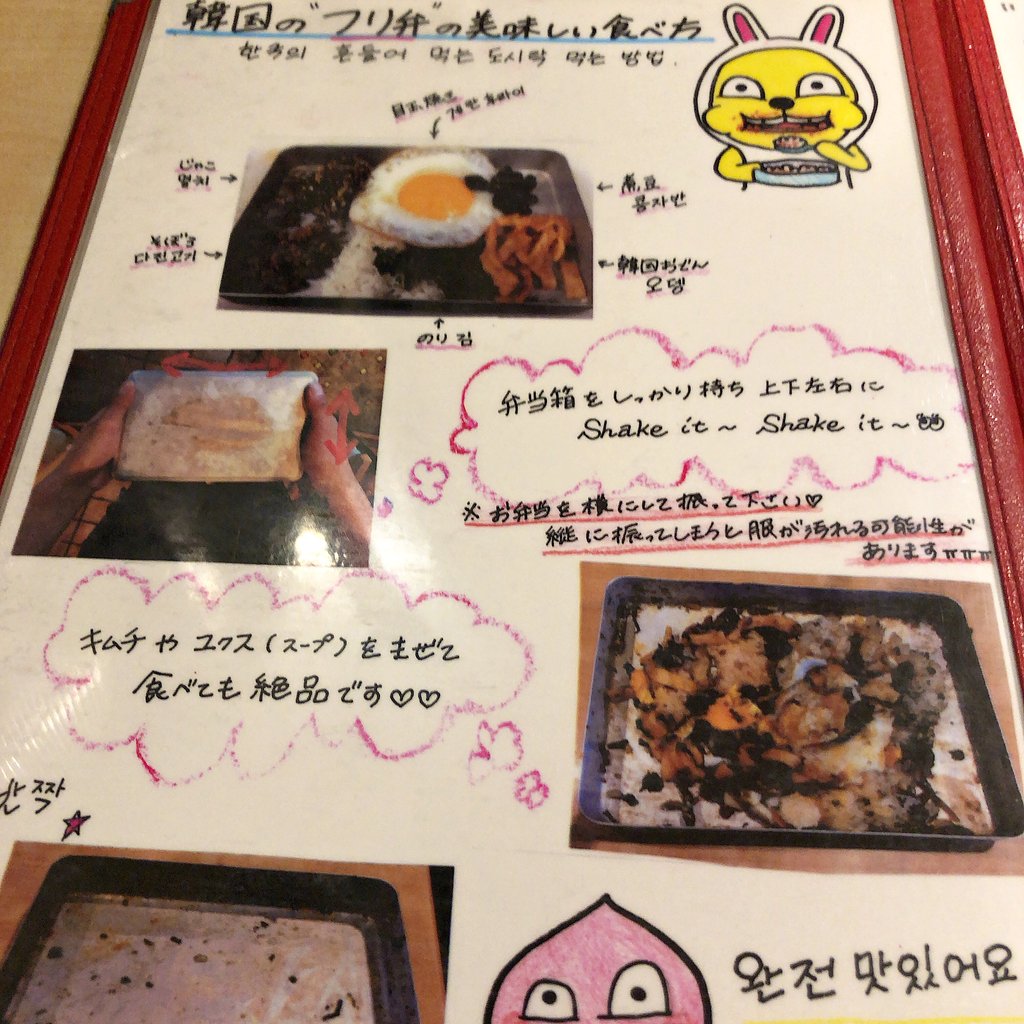 韓国の"フリ弁"の美味しい食べ方
한국의 흔들어 먹는 도시락 먹는 방법.
目玉焼き 계란 후라이
じゃこ
멸치
煮豆
콩자반
そぼろ
다진고기
韓国おでん
오뎅
のり 김
弁当箱をしっかり持ち 上下左右に
Shake it~ Shake it~
※お弁当を横にして振って下さい♡
縦に振ってしまうと服が汚れる可能性が
ありますㅠㅠㅠ
キムチや ユクス(スープ)をまぜて
食べても絶品です♡♡
완전 맛있어요